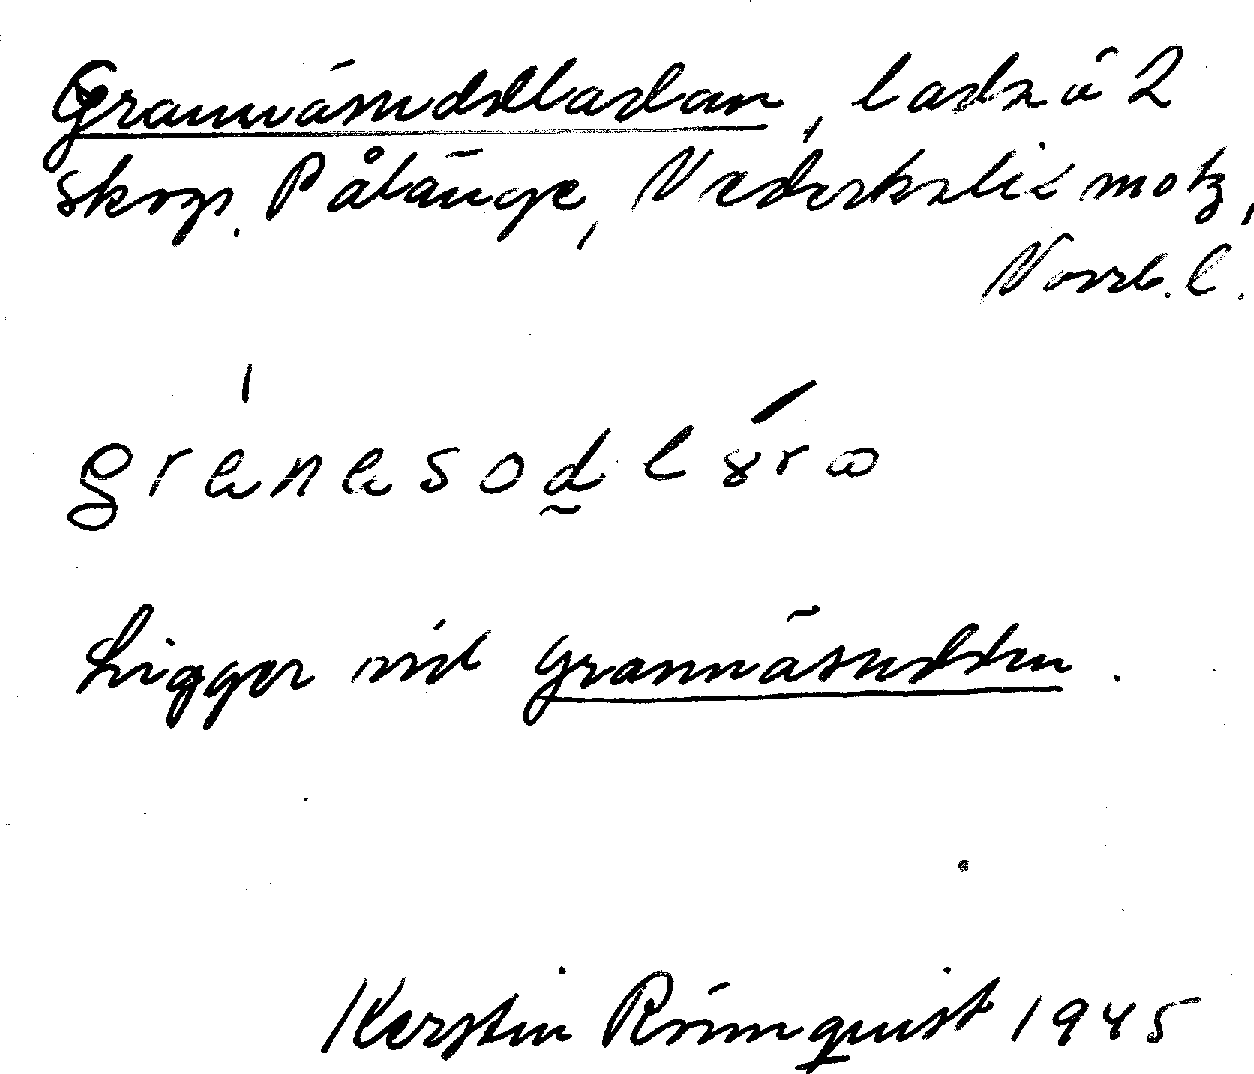 Grannäsuddladan, lada å 2
skog. Pålänge, Nederkalix mot g,
Norrb. l.
grànasodlɑ́ra
Ligger vid Grannäsudden.
Kerstin Rönnquist 1945